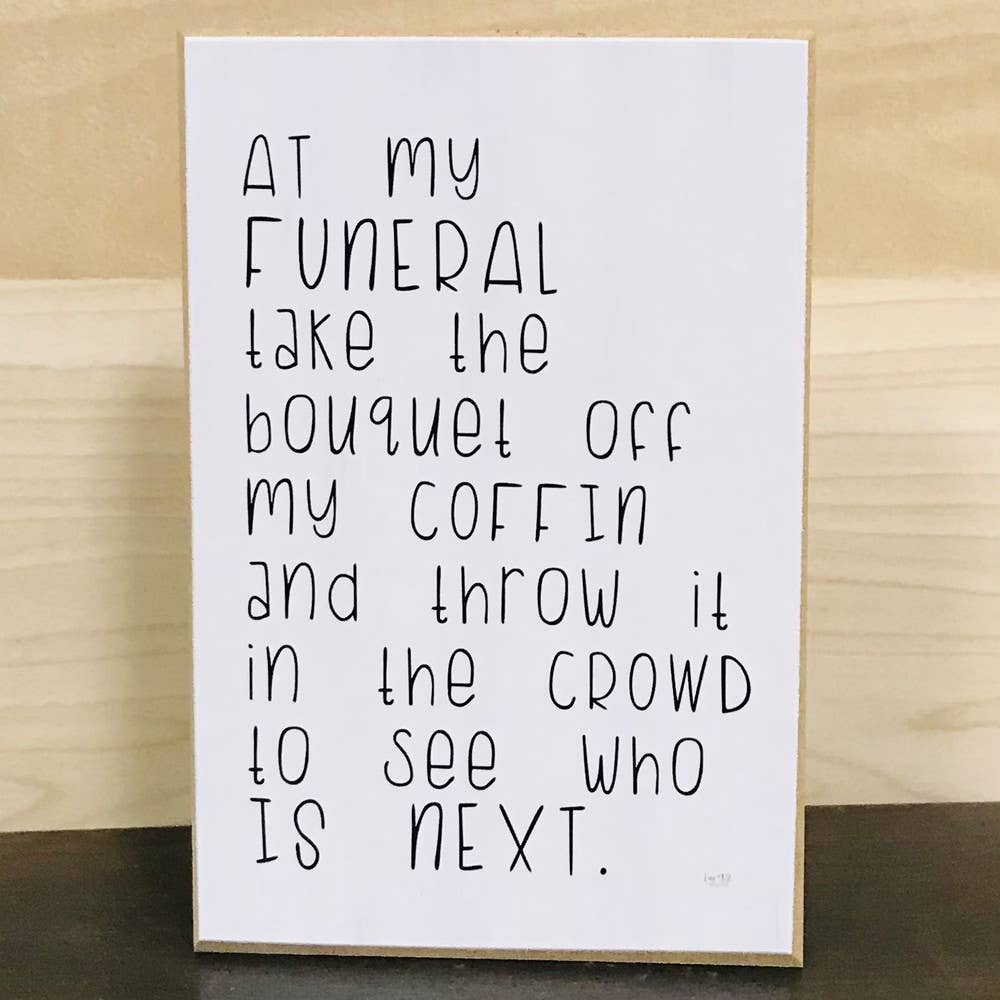 AT my
FUNERAL
take the
bouquet off
my COFFIN
and throw it
in the CROWD
to see who
IS NEXT.